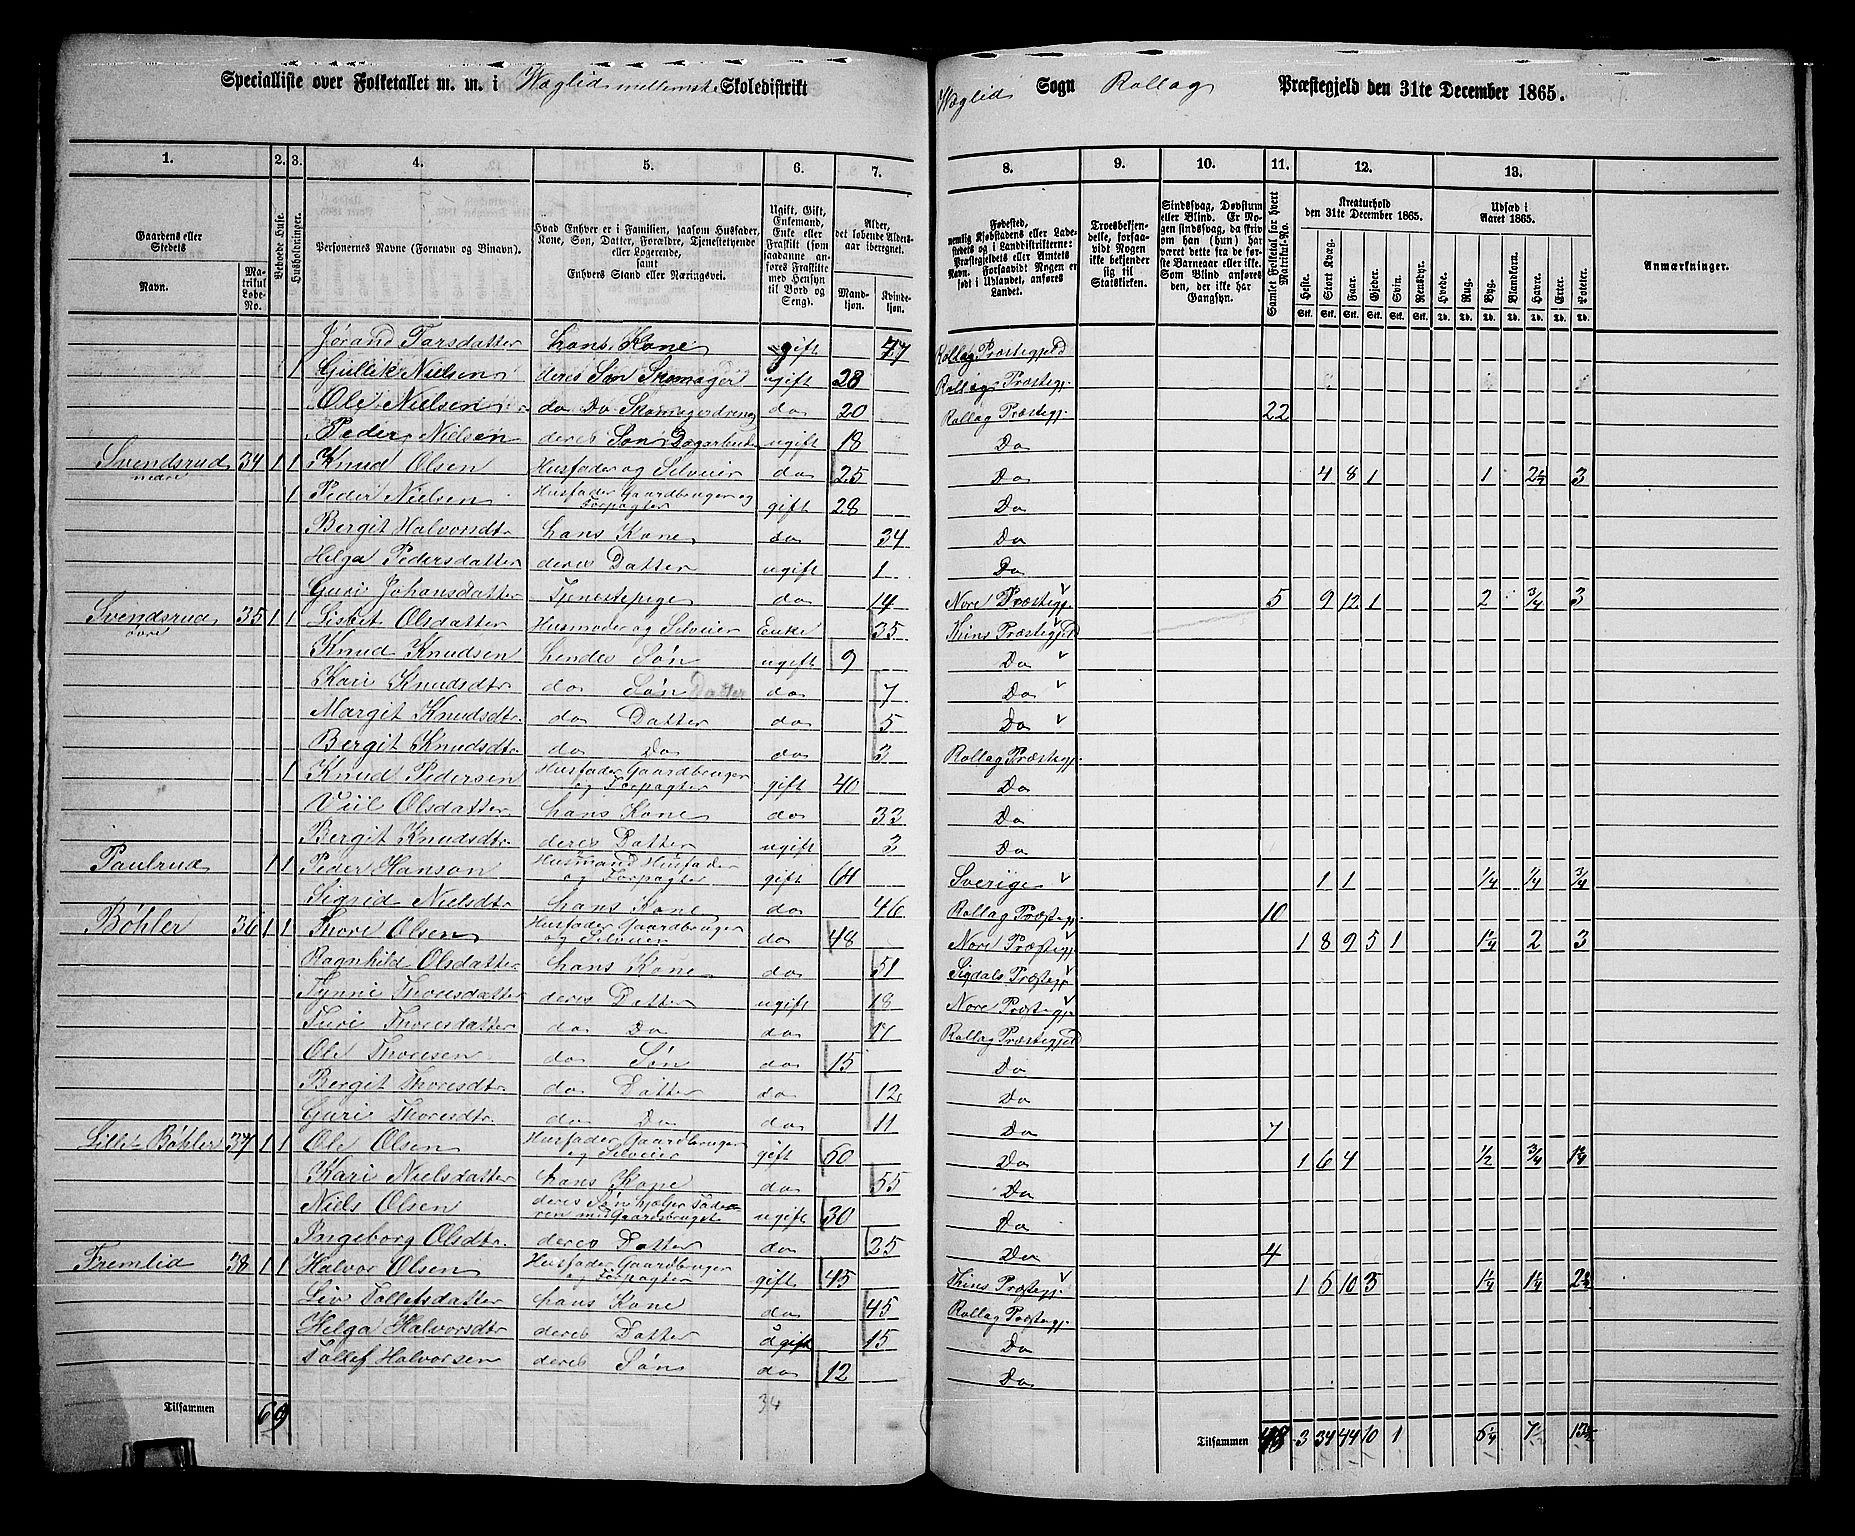 Specialliste over Folketallet m. m. i Væglid mellemste Skoledistrikt Væglid Sogn Rollag Præstegjeld den 31te December 1865.
1. 2. 3. 4. 5. 6. 7. 8. 9. 10. 11. 12. 13.
Gaardens eller Stedets
Navn. Matrikul Løbe-No.
Beboede Huse.
Husholdninger.
Personernes Navne (Fornavn og Binavn).
Hvad Enhver er i Familien, saasom Husfader, Kone, Søn, Datter, Forældre, Tjenestetyende eller Logerende, samt Enhvers Stand eller Næringsvei.
Ugift, Gift, Enkemand, Enke eller Fraskilt (som saadanne anføres Fraskilte med Hensyn til Bord og Seng).
Alder, det løbende Aldersaar iberegnet.
Mandkjøn. Kvindekjøn.
Fødested, nemlig Kjøbstadens eller Ladestedets og i Landdistrikterne: Præstegjeldets eller Amtets Navn. Forsaavidt Nogen er født i Udlandet, anføres Landet.
Troesbekjendelse, forsaavidt Nogen ikke bekjender sig til Statskirken.
Sindssvag, Døvstum eller Blind. Er Nogen sindssvag, da skriv om han (hun) har været dette fra de første Barneaar eller ikke. Som Blind anføres der, der ikke har Gangsyn.
Samlet Folketal for hvert Matrikul-No.
Kreaturhold den 31te December 1865.
Heste. Stort Kvæg. Faar. Gjeder. Svin. Rensdyr.
Udsæd i Aaret 1865.
Hvede. Rug. Byg. Blandkorn. Havre. Erter. Poteter.
Anmærkninger.
Jørand Tarsdatter hans Kone gift 77 Rollag Præstegjeld
1 Gullik Nielsen deres Søn Skomager ugift 28 Rollag Præstegj.
Ole Nielsen do Do Skomagerdreng do 20 Rollag Præstegj. 22
Peder Nielsen deres Søn Dagarbeider ugift 18 Do
Svendsrud nedre 34 1 1 Knud Olsen Husfader og Selveier do 25 Do 4 8 1 1 2¼ 3
1 Peder Nielsen Husfader Gaardbruger og Forpagter gift 28 Do
Bergit Halvorsdtr hans Kone do 34 Do
Helga Pedersdatter deres Datter ugift 1 Do
Guri Johansdatter Tjenestepige do 14 Nore Præstegj. 5 9 12 1 2 ¾ 3
Svendsrud øvre 35 1 1 Lisbet Olsdatter Husmoder og Selveier Enke 35 Tins Præstegjeld
Knud Knudsen hendes Søn ugift 9 Do
Kari Knudsdtr do Søn Datter do 7 Do
Margit Knudsdtr. do Datter do 5 Do
Bergit Knudsdtr do Do do 3 Rollag Præstegj.
1 Knud Pedersen Husfader Gaardbruger og Forpagter gift 40 Do
Viil Olsdatter hans Kone do 33 Do
Bergit Knudsdtr. deres Datter ugift 3 Do
Paulrud 1 1 Peder Hanson Husmand Husfader og Forpagter gift 61 Sverige 1 1 ¼ ¼ ¾
Sigrid Nielsdtr hans Kone do 46 Rollag Præstegj. 10
Bøhler 36 1 1 Thore Olsen Husfader Gaardbruger og Selveier do 48 Nore Præstegj 1 8 9 5 1 1¼ 2 3
Ragnhild Olsdatter hans Kone do 51 Sigdals Præstegj
Synni Thoresdatter deres Datter ugift 18 Nore Præstegj.
Turi Thoresdatter do Do do 17 Rollag Præstegjeld
Ole Thoresen do Søn do 15 Do
Bergit Thoresdtr. do Datter do 12 Do
Guri Thoresdtr. do Do do 11 Do 7
Lille Bøhler 37 1 1 Ole Olsen Husfader Gaardbruger og Selveier gift 60 Do 1 6 4 ½ ¾ 1¼
Kari Nielsdatter hans Kone do 55 Do
Niels Olsen deres Søn hjelper Faderen med Gaardsbruget ugift 30 Do
Ingeborg Olsdtr. deres Datter do 25 Do 4
Fremlid 38 1 1 Halvor Olsen Husfader Gaardbruger og Forpagter gift 45 Tins Præstegj. 1 6 10 3 1¼ 1¼ 2¼
Liv Tollefsdatter hans Kone do 45 Rollag Præstegj.
Helga Halvorsdtr deres Datter ugift 15 Do
Tollef Halvorsen deres Søn do 12 Do
Tilsammen 6 9 34 Tilsammen 48 3 34 44 10 1 6¼ 7½